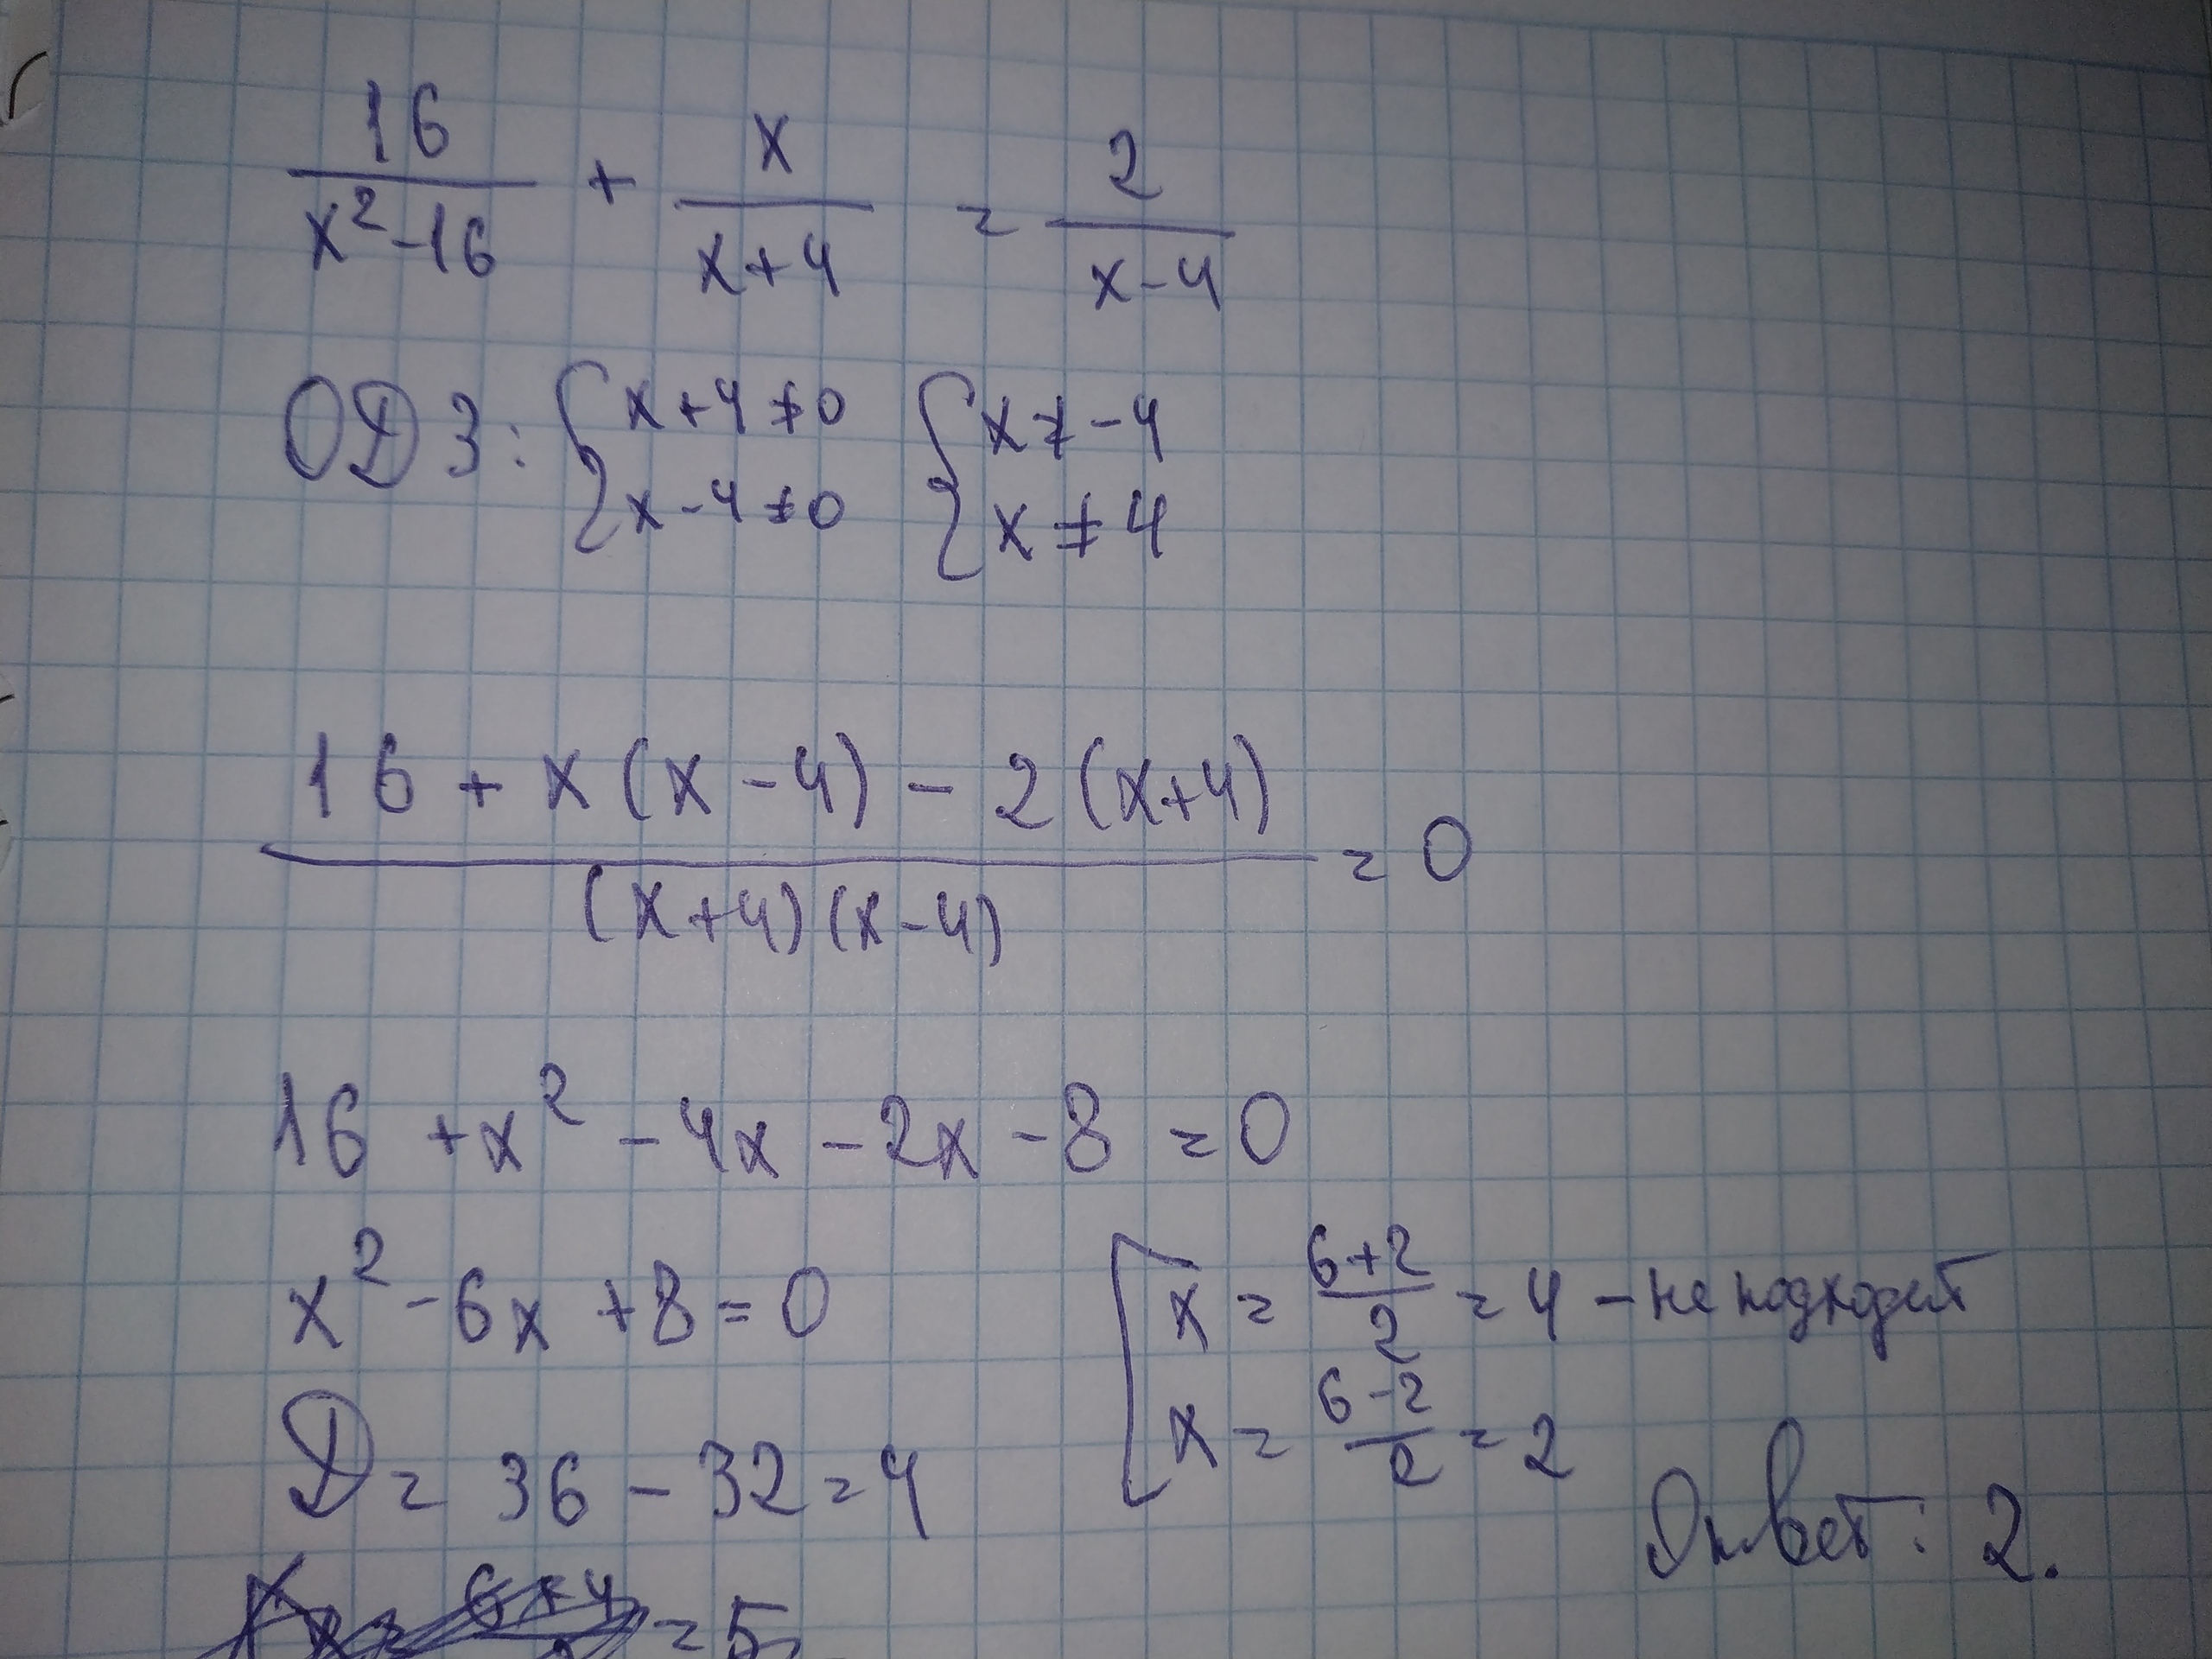 16/(x²-16) + x/(x+4) = 2/(x-4)
ОДЗ: { x+4≠0 { x≠-4
x-4≠0 x≠4
(16+x(x-4)-2(x+4))/((x+4)(x-4)) = 0
16+x²-4x-2x-8=0
x²-6x+8=0
D=36-32=4
[ x = (6+2)/2 = 4 - не подходит
x = (6-2)/2 = 2
Ответ: 2.
= 5